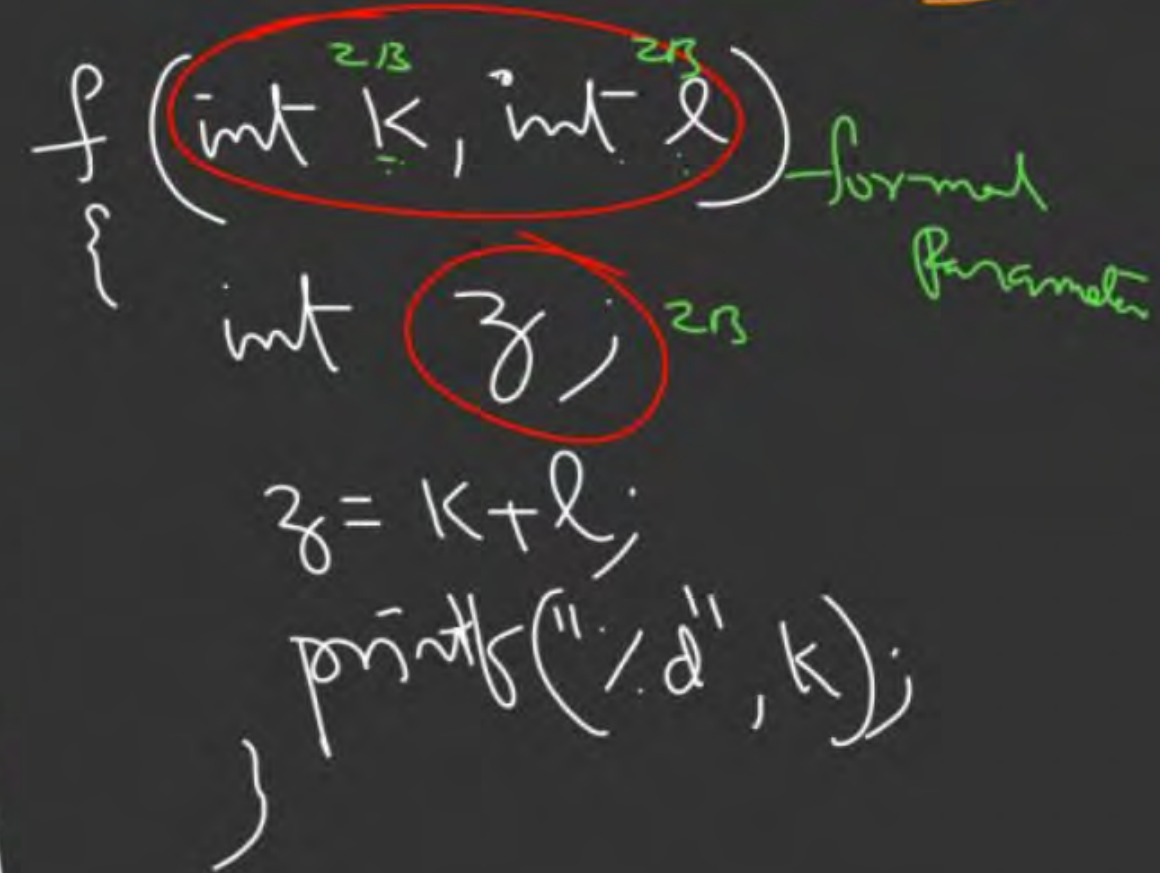 2B 2B
f (int k, int l) - formal
Parameter
{
int z; 2B
z = k+l;
printf("%d", k);
}